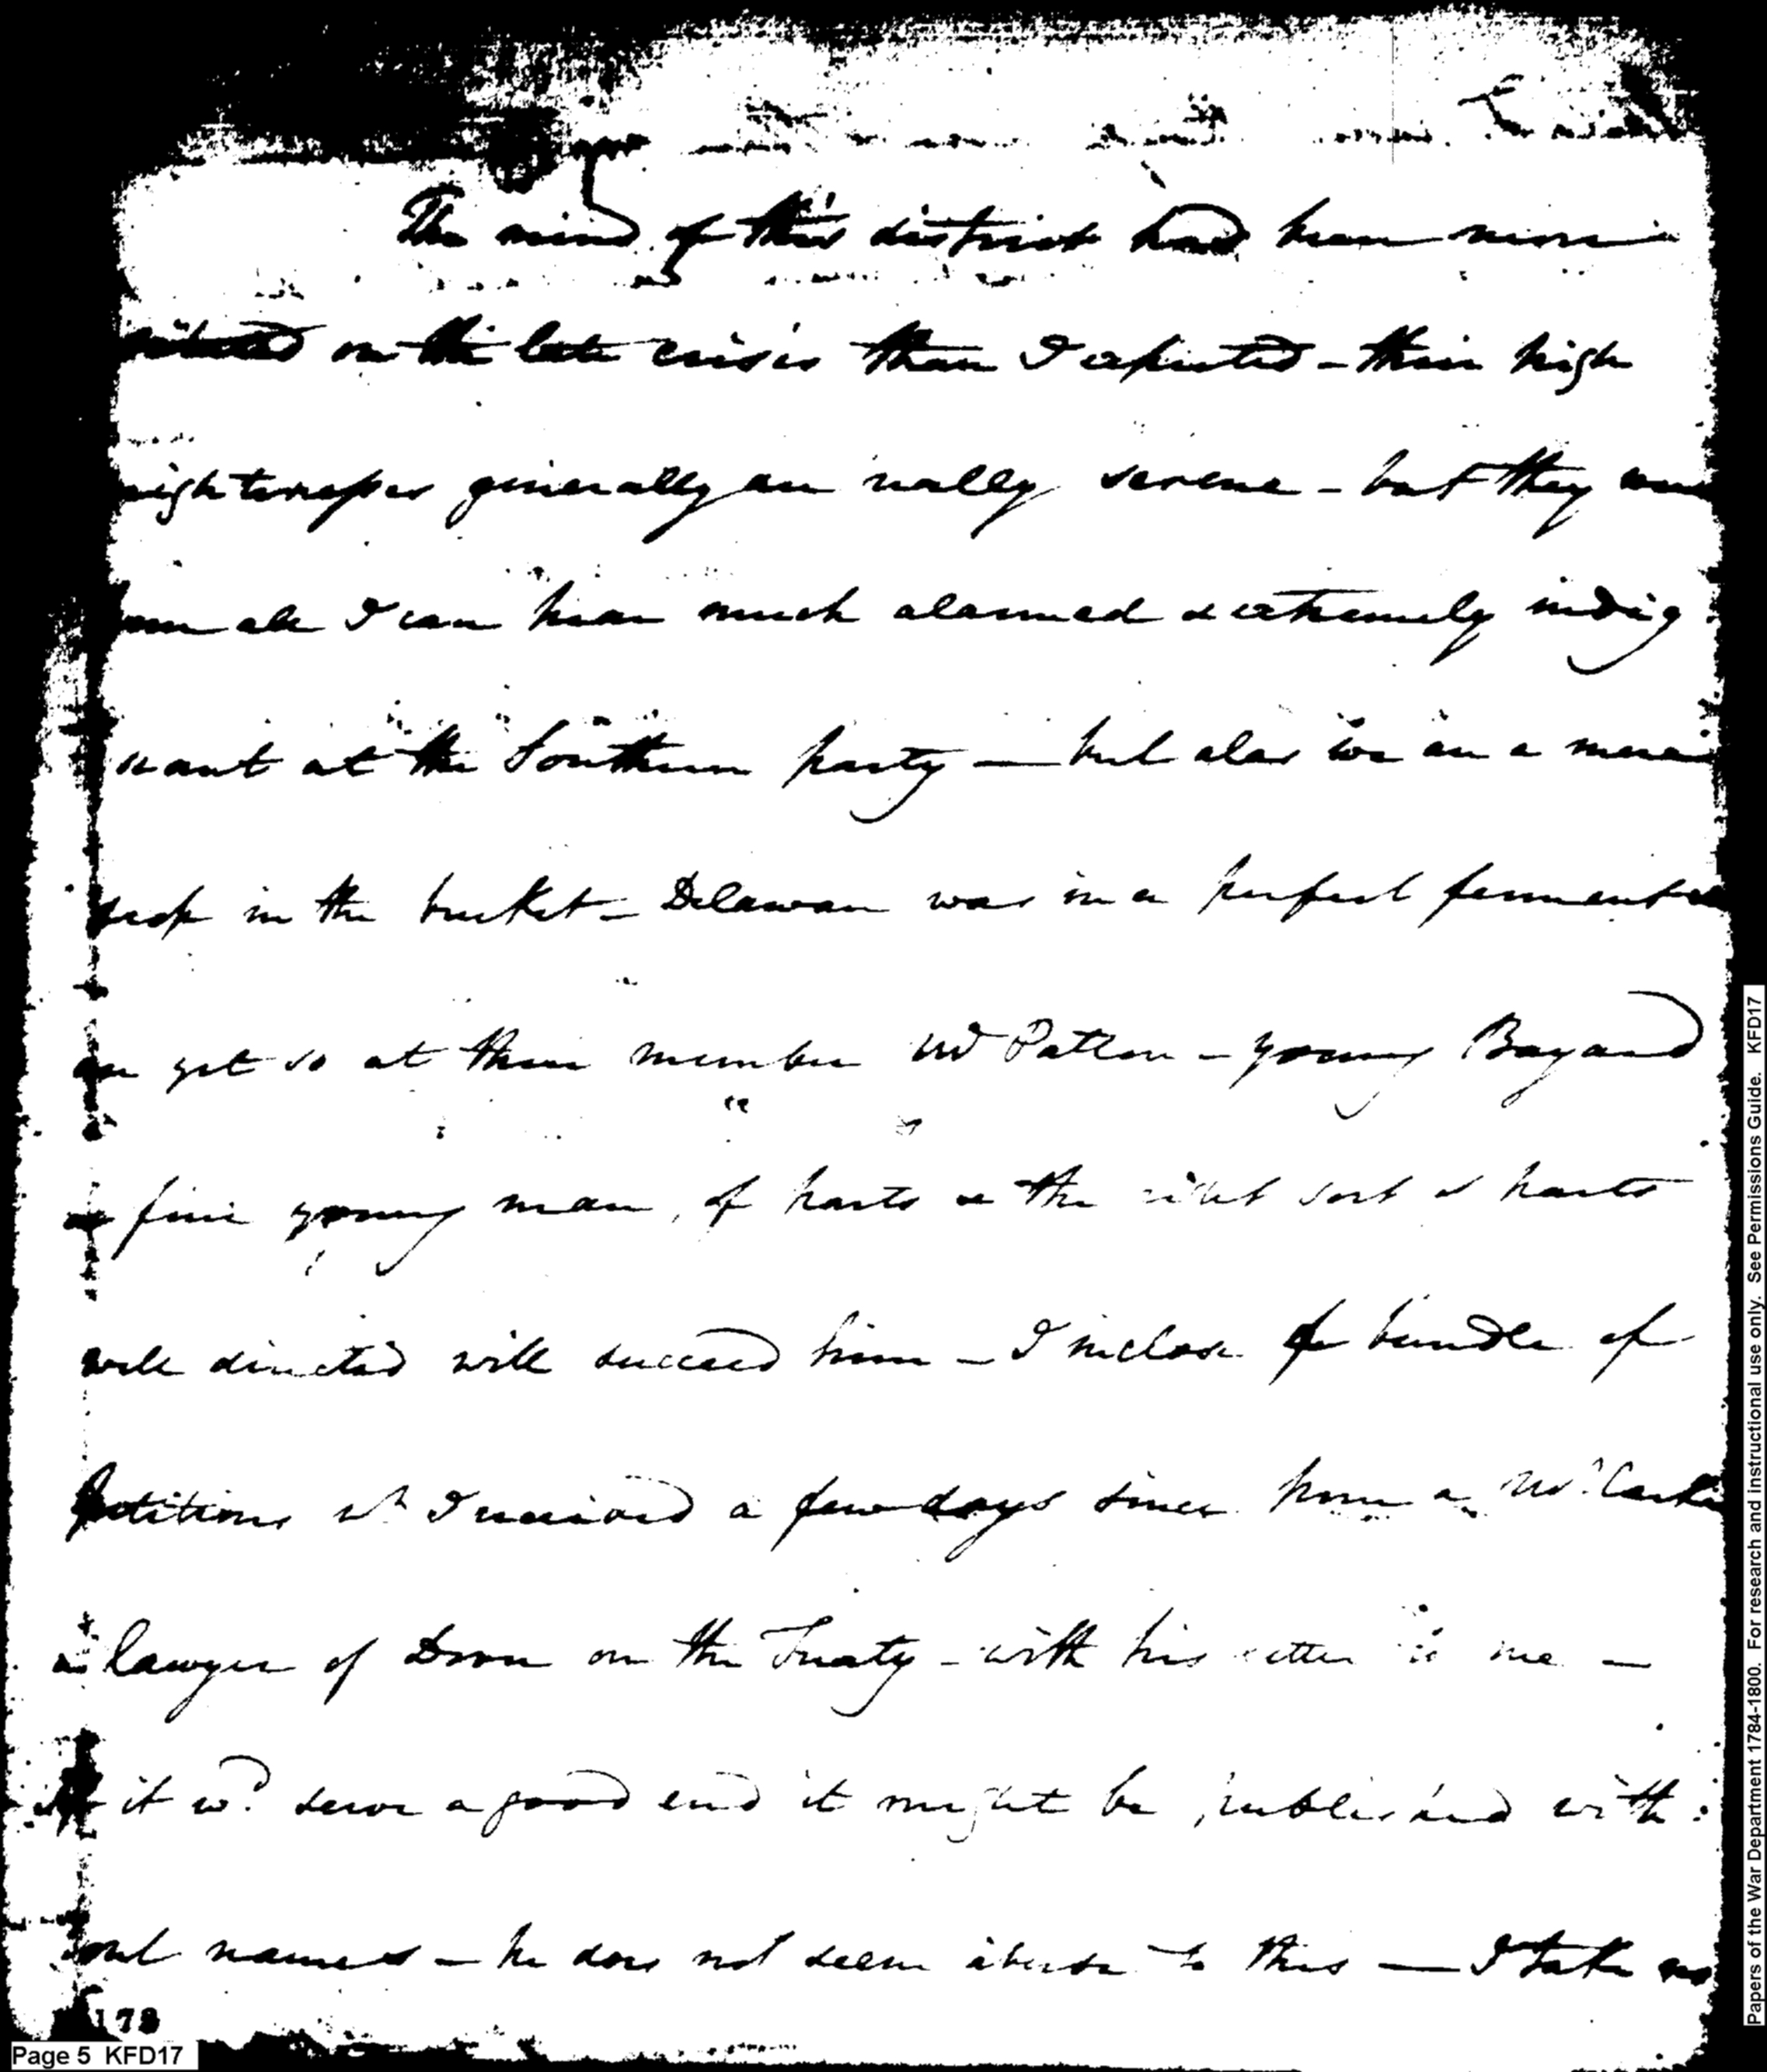 The mind of this district had been more
on the late crisis than I expected - their high
generally are really serene - but they were
from all I can hear much alarmed & extremely indig
nant at the Southern party — but alas we are a mere
drop in the bucket - Delaware was in a perfect
are yet so at their member Patten - young Bayard
a fine young man, of parts & the right sort of parts
well directed will succeed him - I inclose a bundle of
petitions wh I received a few days since from a Mr.
a lawyer of Dover on the Treaty - with his letter to me —
if it wd. serve a good end it might be published with
out names - he does not seem averse to this — I take no
178
Page 5 KFD17
Papers of the War Department 1784-1800. For research and instructional use only. See Permissions Guide. KFD17